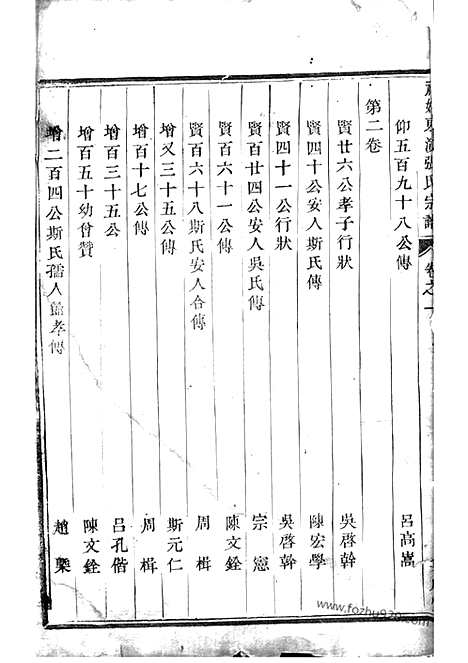 張氏宗譜 卷之一
仰五百九十八公傳 呂高嵩
第二卷
賢廿六公孝子行狀 吳啓幹
賢四十公安人斯氏傳 陳宏學
賢四十一公行狀 吳啓幹
賢百廿四公安人吳氏傳 宗憲
賢百六十一公傳 陳文銓
賢百六十八斯氏安人合傳 周楫
增又三十五公傳 斯元仁
增百十七公傳 周楫
增百三十五公 呂孔偕
增百五十幼曾贊 陳文銓
增二百四公斯氏孺人節孝傳 趙槼
www.fozhu920.com